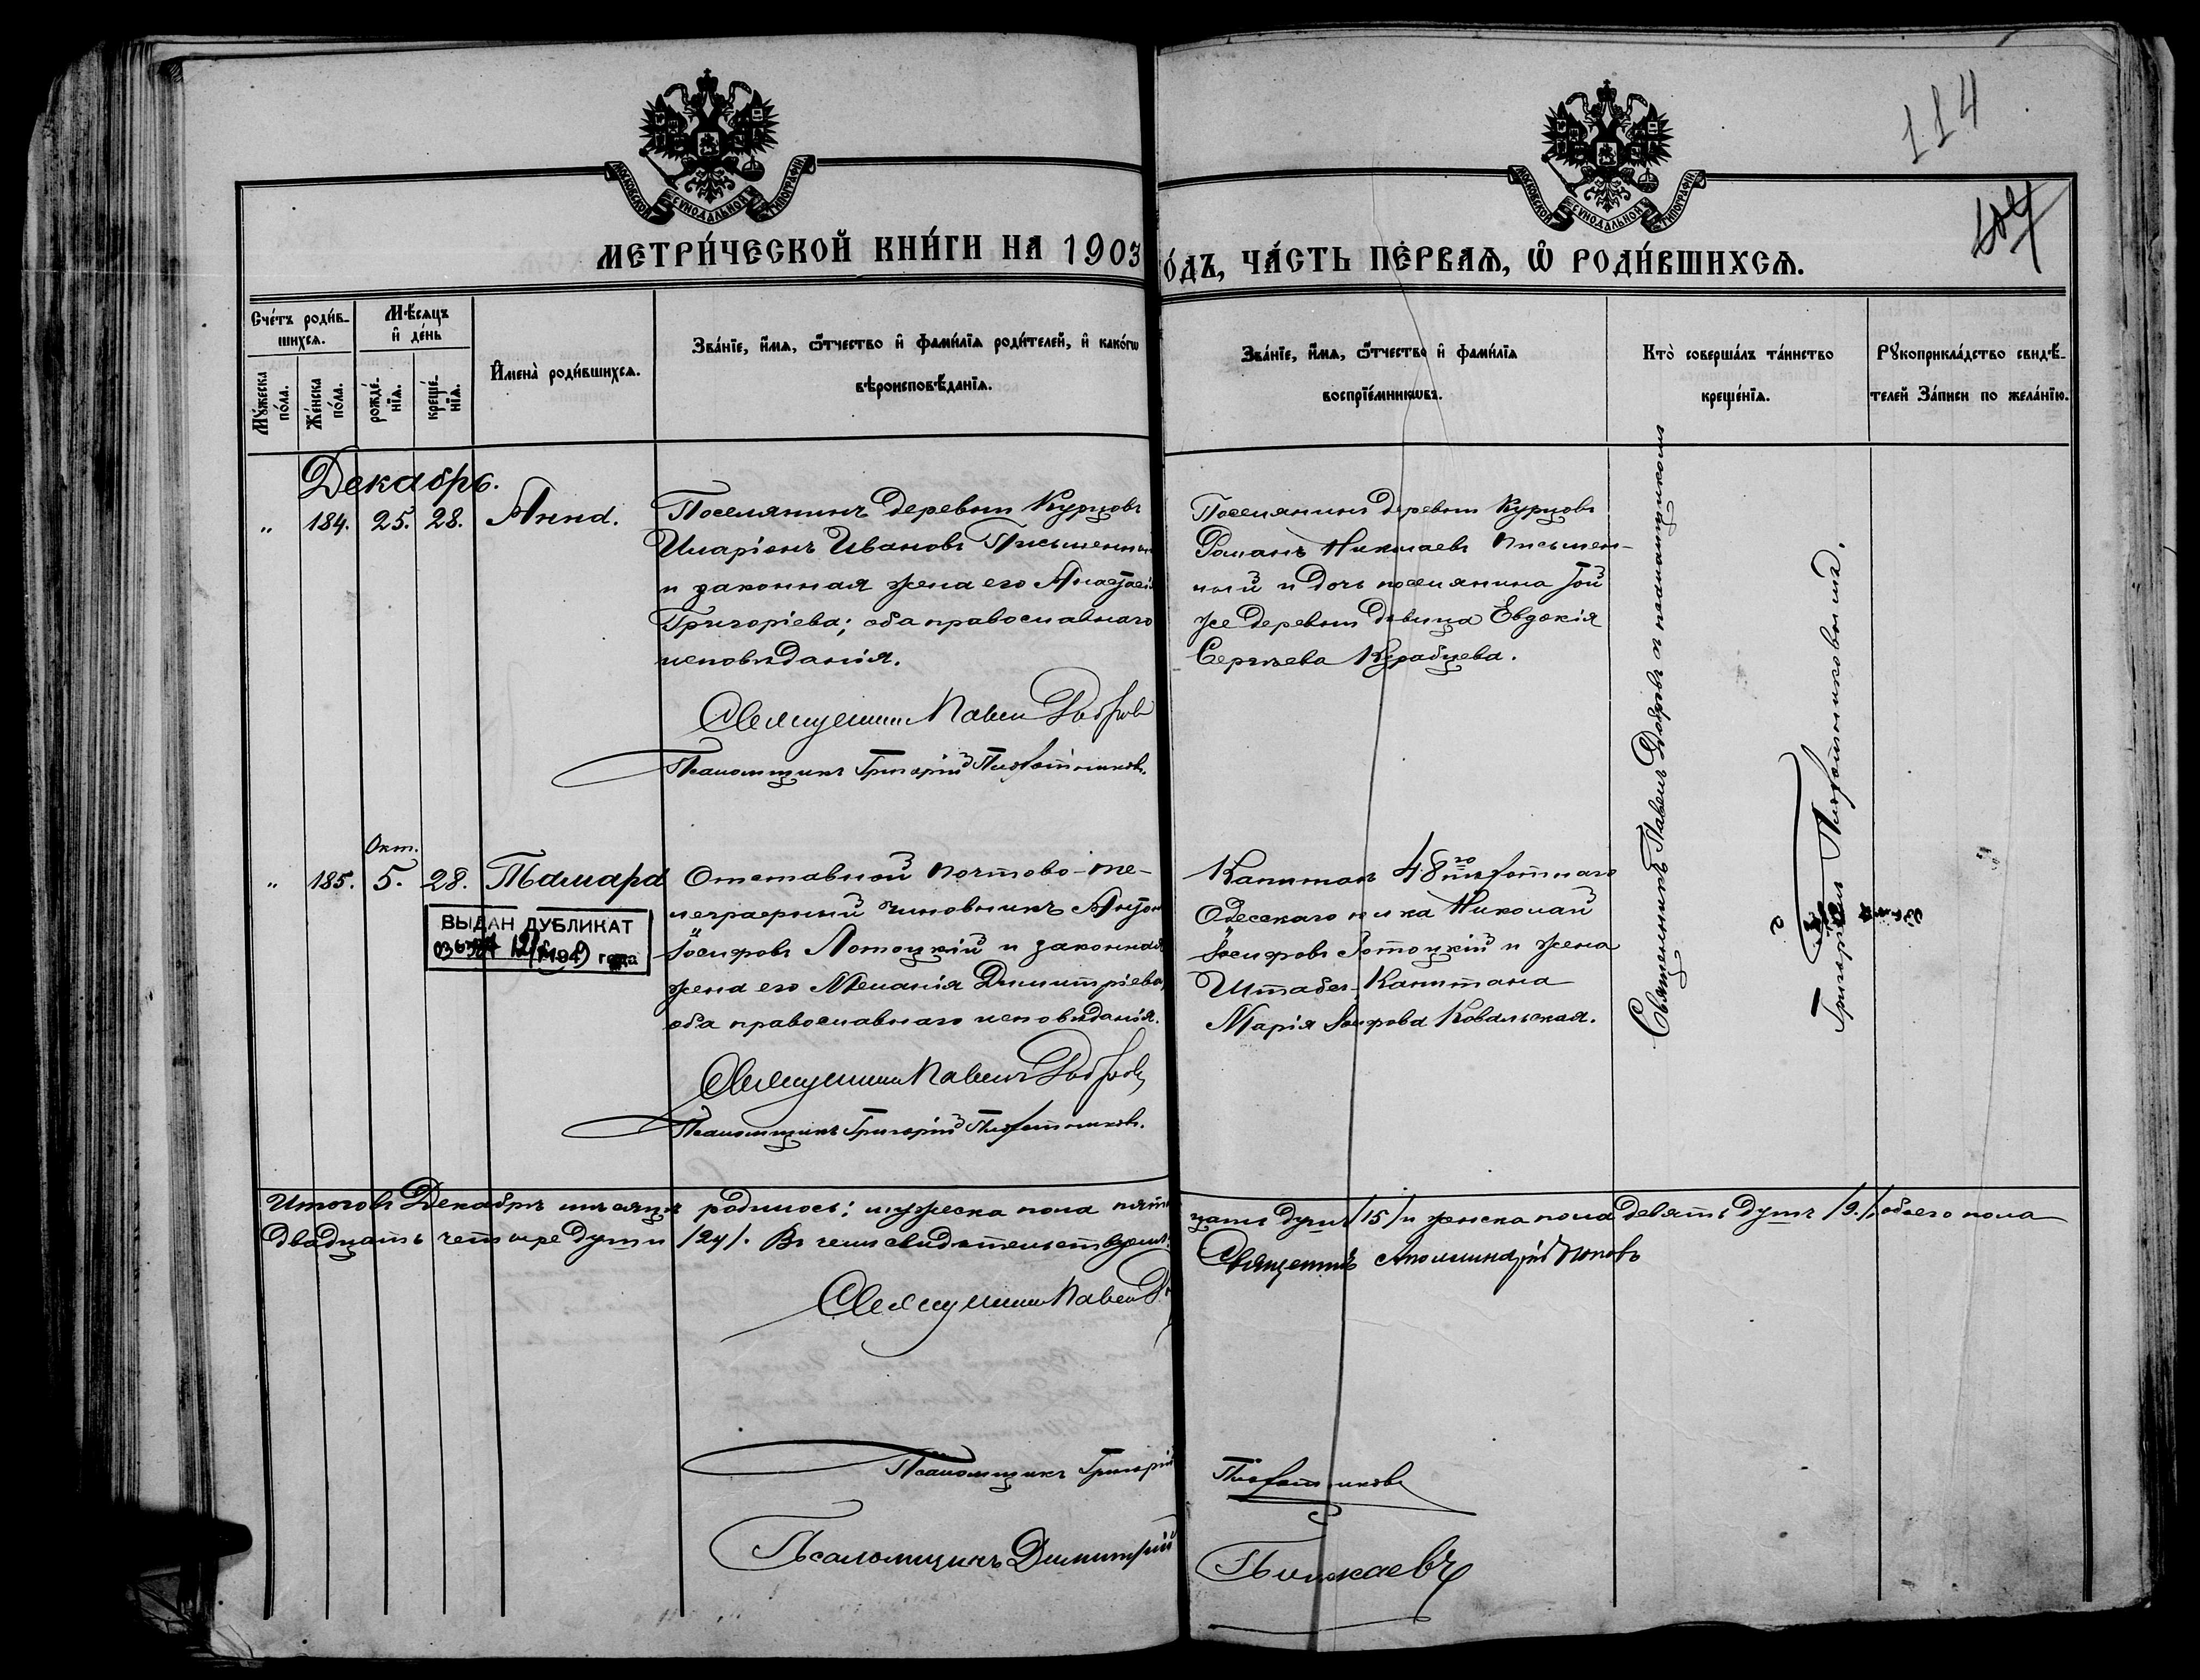 114
МОСКОВСКОЙ СѴНОДАЛЬНОЙ ТИПОГРАФІИ
МОСКОВСКОЙ СѴНОДАЛЬНОЙ ТИПОГРАФІИ
МЕТРИ́ЧЕСКОЙ КНИ́ГИ НА 1903
О́ДЪ, ЧА́СТЬ ПЕ́РВАѦ, Ѿ РОДИ́ВШИХСѦ.
Сче́тъ роди́в-
шихсѧ.
Мꙋ́жеска по́ла.
Же́нска по́ла.
Мѣ́сѧцъ
и҆ де́нь
рожде́-
нїѧ.
креще́-
нїѧ.
И҆мена̀ роди́вшихсѧ.
Зва́нїе, и҆́мѧ, ѻ҆́тчество и҆ фами́лїѧ роди́телей, и҆ како́гѡ
вѣроисповѣ́данїѧ.
Зва́нїе, и҆́мѧ, ѻ҆́тчество и҆ фами́лїѧ
воспрїе́мникѡвъ.
Кто̀ соверша́лъ та́инство
креще́нїѧ.
Рꙋкоприкла́дство свидѣ́-
телей за́писи по жела́нїю.
Декабрь.
„ 184. 25. 28. Анна.
Поселянинъ деревни Курцовъ
Иларіонъ Ивановъ Письменный
и законная жена его Анастасі
Григоріева; оба православнаго
исповѣданія.
Священникъ Павелъ Добровъ
Псаломщикъ Григорій Плотниковъ.
Поселянинъ деревни Курцовъ
Романъ Николаевъ Письмен-
ный и дочь поселянина той
же деревни дѣвица Евдокія
Сергѣева Курабцева.
Священникъ Павелъ Добровъ съ псаломщикомъ
Григоріемъ Плотниковымъ.
Окт.
„ 185. 5. 28. Тамара
ВЫДАН ДУБЛИКАТ
194 года
Отставной почтово-те-
леграфный чиновникъ Антон
Іосифовъ Лотоцкій и законная
жена его Меланія Димитріева,
оба православнаго исповѣданія.
Священникъ Павелъ Добровъ
Псаломщикъ Григорій Плотниковъ.
Капитанъ 48го пѣхотнаго
Одесскаго полка Николай
Іосифовъ Лотоцкій и жена
Штабсъ-Капитана
Марія Іосифова Ковальская.
Итого въ Декабрѣ мѣсяцѣ родилось: мужеска пола пятна
дцать душъ /15/ и женска пола девять душъ /9./, обоего пола
двадцать четыре души /24/. Въ чемъ свидѣтельствуемъ:
Священникъ Павелъ
Священникъ Аполлинарій Поповъ
Псаломщикъ Григорій
Плотниковъ
Псаломщикъ Димитрій